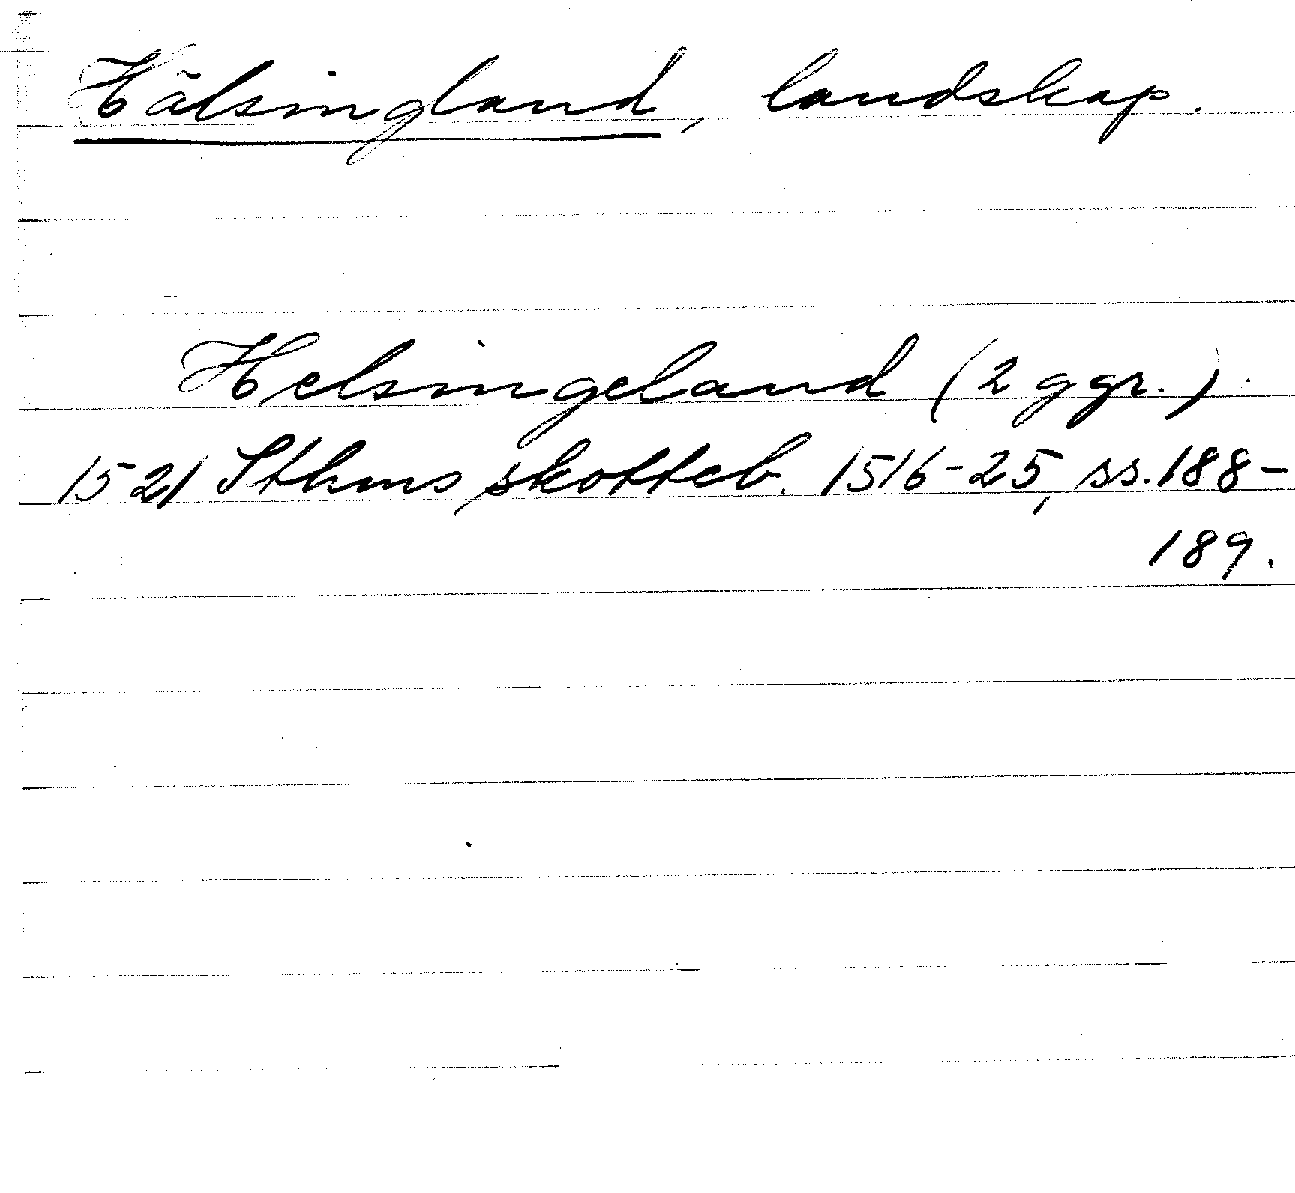 Hälsingland, landskap.
Helsingeland (2 ggr.).
1521 Sthms skotteb. 1516-25, ss. 188-
189.